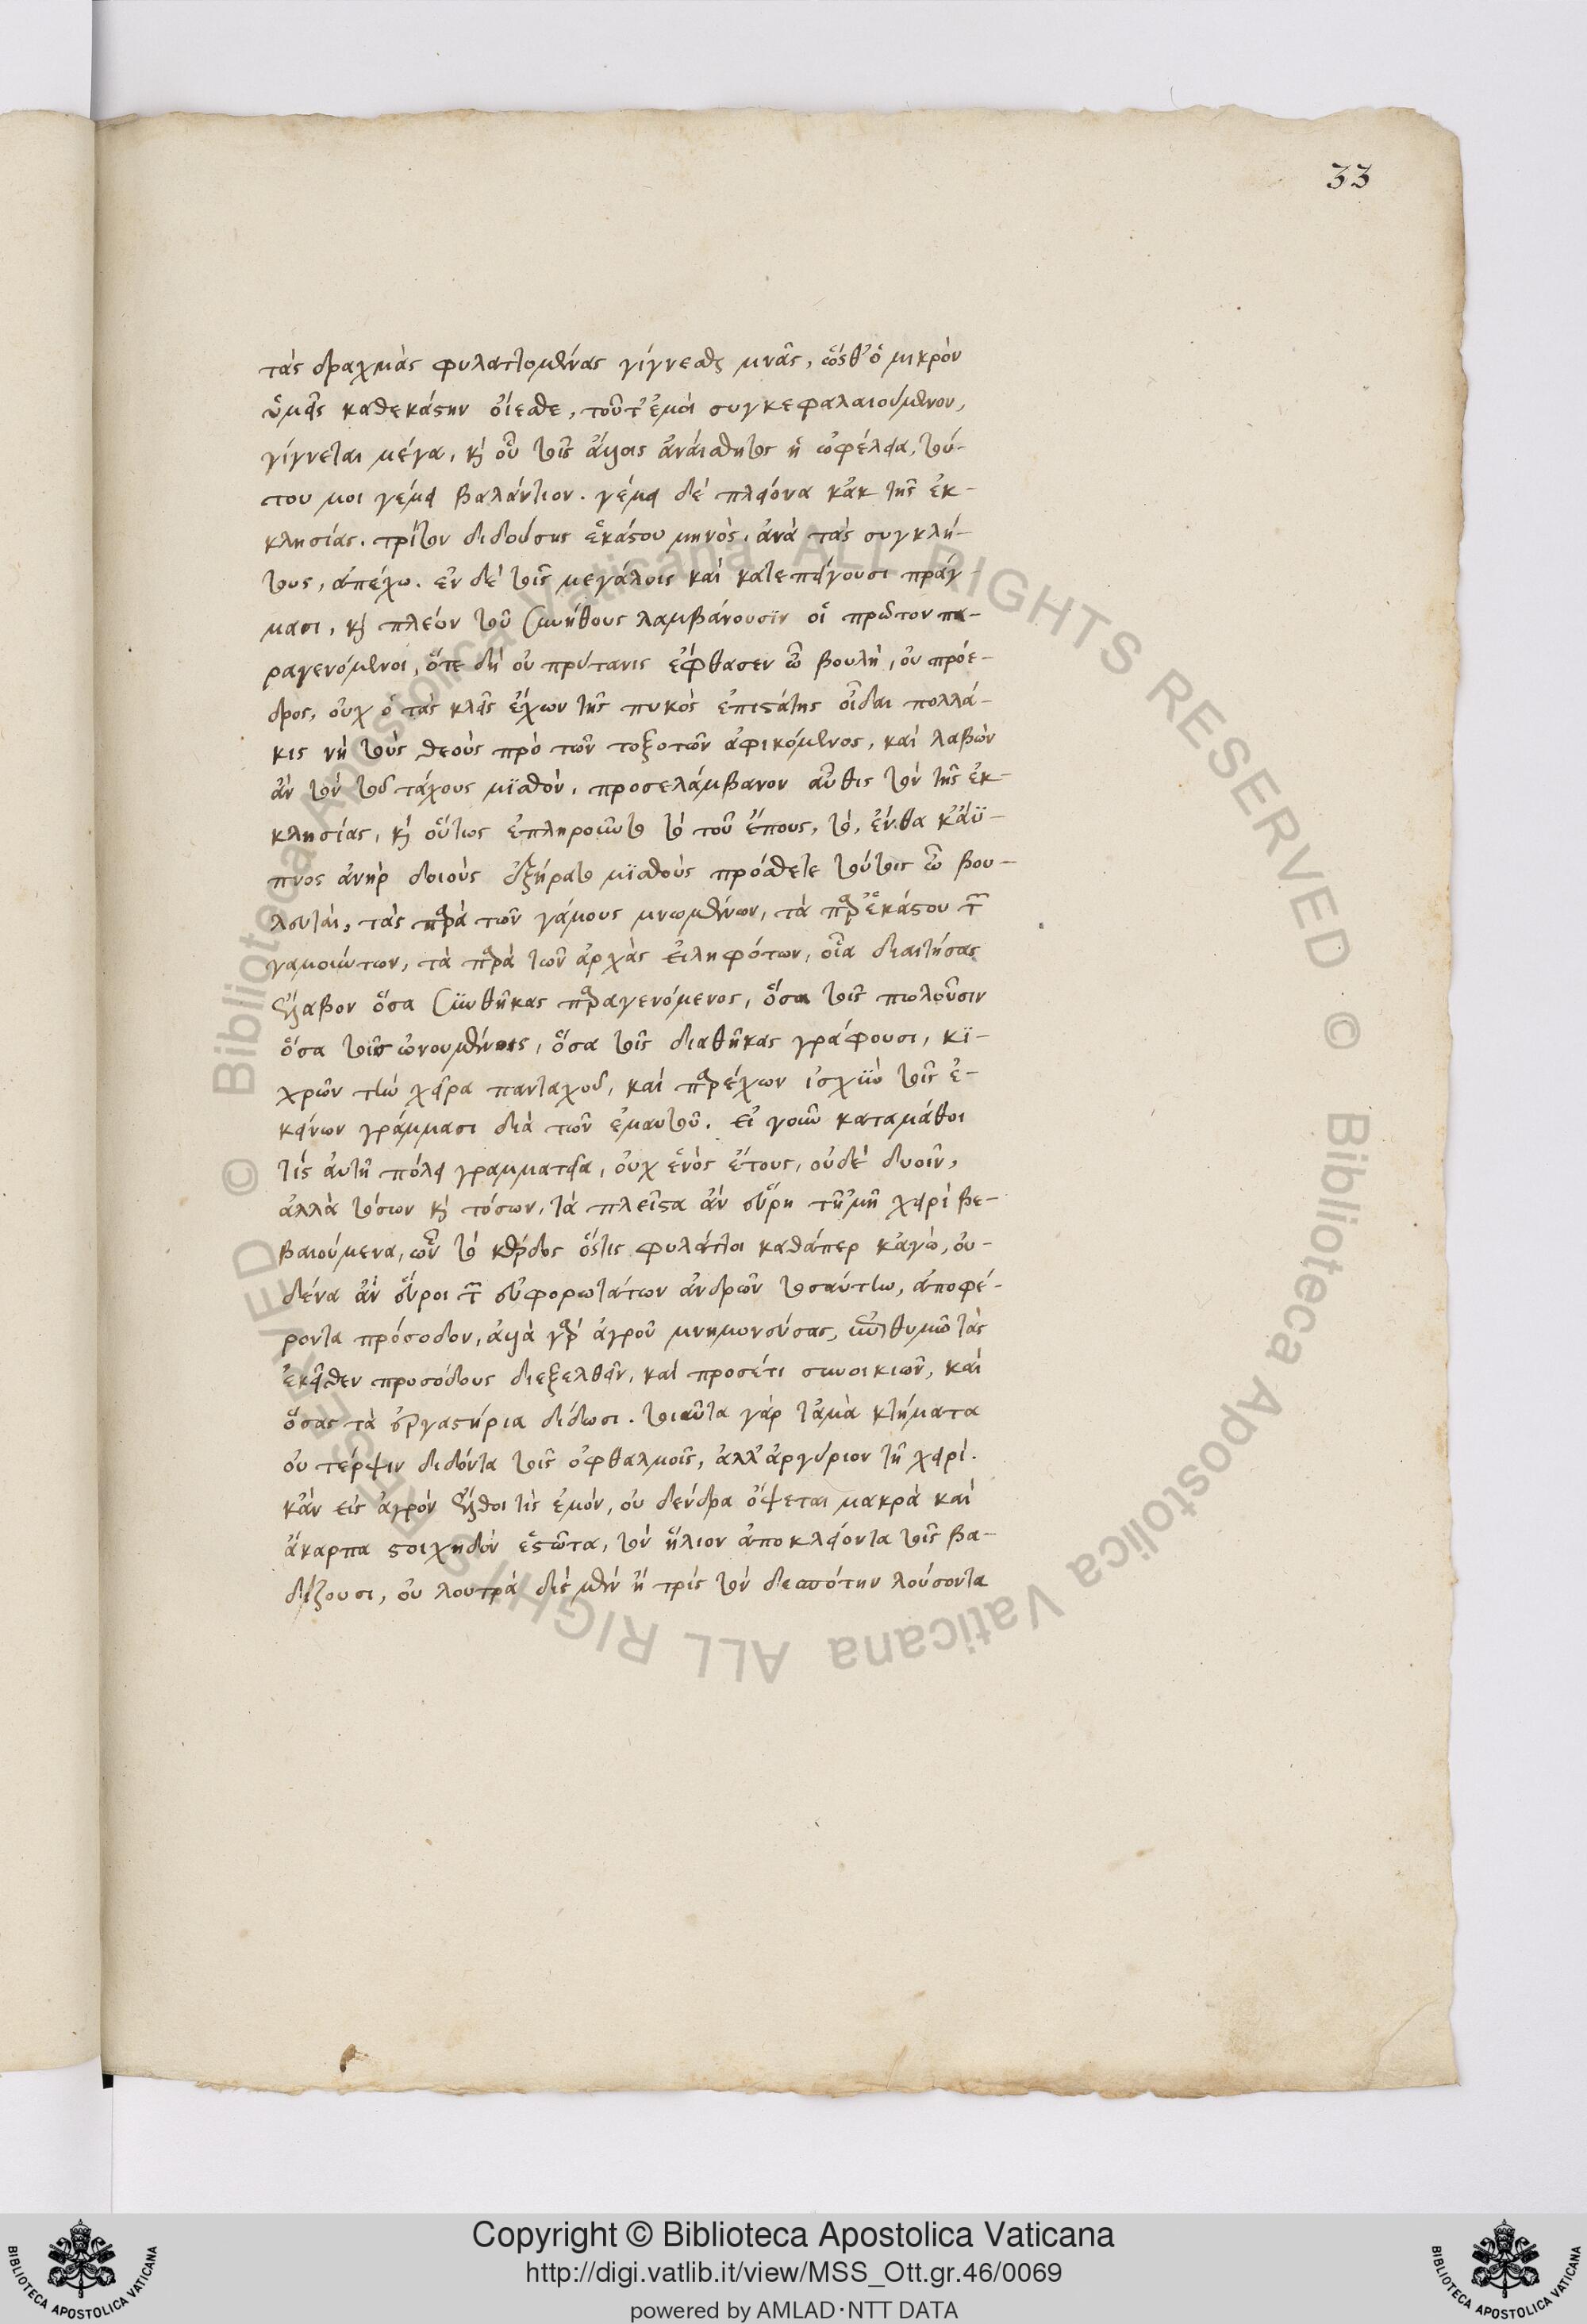 33
τὰς δραχμὰς φυλαττομένας γίγνεσθαι μνᾶς, ὥσθ' ὃ μικρὸν
ὑμεῖς καθεκάστην οἴεσθε, τοῦτ' ἐμοὶ συγκεφαλαιούμενον,
γίγνεται μέγα, καὶ οὗ τοῖς ἄλλοις ἀναίσθητος ἡ ὠφέλεια, τού-
του μοι γέμει βαλάντιον. γέμει δὲ πλείονα κἀκ τῆς ἐκ-
κλησίας. τρίτον διδούσης ἑκάστου μηνὸς, ἀνὰ τὰς συγκλή-
τους, ἀπέχω. ἐν δὲ τοῖς μεγάλοις καὶ κατεπείγουσι πράγ-
μασι, καὶ πλέον τοῦ συνήθους λαμβάνουσιν οἱ πρῶτον πα-
ραγενόμενοι, ὅτε δὴ οὐ πρύτανις ἔφθασεν ἐν βουλῇ, οὐ πρόε-
δρος, οὐχ ὁ τὰς κλεῖς ἔχων τῆς πυκὸς ἐπιστάτης οἶδα πολλά-
κις νὴ τοὺς θεοὺς πρὸ τῶν τοξοτῶν ἀφικόμενος, καὶ λαβὼν
ἂν τὸν τοῦ τάχους μισθὸν, προσελάμβανον αὖθις τὸν τῆς ἐκ-
κλησίας, καὶ οὕτως ἐπληροῦτο τὸ τοῦ ἔπους, τὸ, ἔνθα κ' ἄϋ-
πνος ἀνὴρ δοιοὺς ἐξήρατο μισθοὺς πρόσθετε τούτοις ἐν βου-
λευταὶ, τὰς παρὰ τῶν γάμους μνωμένων, τὰ παρ' ἑκάστου τῶν
γαμούντων, τὰ παρὰ τῶν ἀρχὰς εἰληφότων, οἷα διαιτήσας
ἔλαβον ὅσα συνθήκας παραγενόμενος, ὅσα τοῖς πωλοῦσιν
ὅσα τοῖς ὠνουμένοις, ὅσα τοῖς διαθήκας γράφουσι, κι-
χρῶν τὴν χεῖρα πανταχοῦ, καὶ παρέχων ἰσχὺν τοῖς ἐ-
κείνων γράμμασι διὰ τῶν ἐμαυτοῦ. εἰ γοῦν καταμάθοι
τὶς ἀυτῇ πόλει γραμματεῖα, οὐχ ἑνὸς ἔτους, οὐδὲ δυοῖν,
ἀλλὰ τόσων καὶ τόσων, τὰ πλεῖστα ἂν εὕρῃ τῇ 'μῇ χειρὶ βε-
βαιούμενα, ὧν τὸ κέρδος ὅστις φυλάττοι καθάπερ κἀγὼ, οὐ-
δένα ἂν εὕροι τῶν εὐφορωτάτων ἀνδρῶν τοσαύτην, ἀποφέ-
ροντα πρόσοδον, ἀλλὰ γὰρ ἀγροῦ μνημονεύσας, ἐνθυμῶ τὰς
ἐκεῖθεν προσόδους διεξελθεῖν, καὶ προσέτι συνοικιῶν, καὶ
ὅσας τὰ ἐργαστήρια δίδωσι. τοιαῦτα γὰρ τἀμὰ κτήματα
οὐ τέρψιν διδόντα τοῖς ὀφθαλμοῖς, ἀλλ' ἀργύριον τῇ χειρί.
κἂν εἰς ἀγρὸν ἔλθοι τὶς ἐμὸν, οὐ δένδρα ὄψεται μακρὰ καὶ
ἄκαρπα στοιχηδὸν ἑστῶτα, τὸν ἥλιον ἀποκλείοντα τοῖς βα-
δίζουσι, οὐ λουτρὰ δὶς μὲν ἢ τρὶς τὸν δεσπότην λούσοντα
Copyright © Biblioteca Apostolica Vaticana
http://digi.vatlib.it/view/MSS_Ott.gr.46/0069
powered by AMLAD·NTT DATA
BIBLIOTECA APOSTOLICA VATICANA
BIBLIOTECA APOSTOLICA VATICANA
© Biblioteca Apostolica Vaticana ALL RIGHTS RESERVED
© Biblioteca Apostolica Vaticana ALL RIGHTS RESERVED